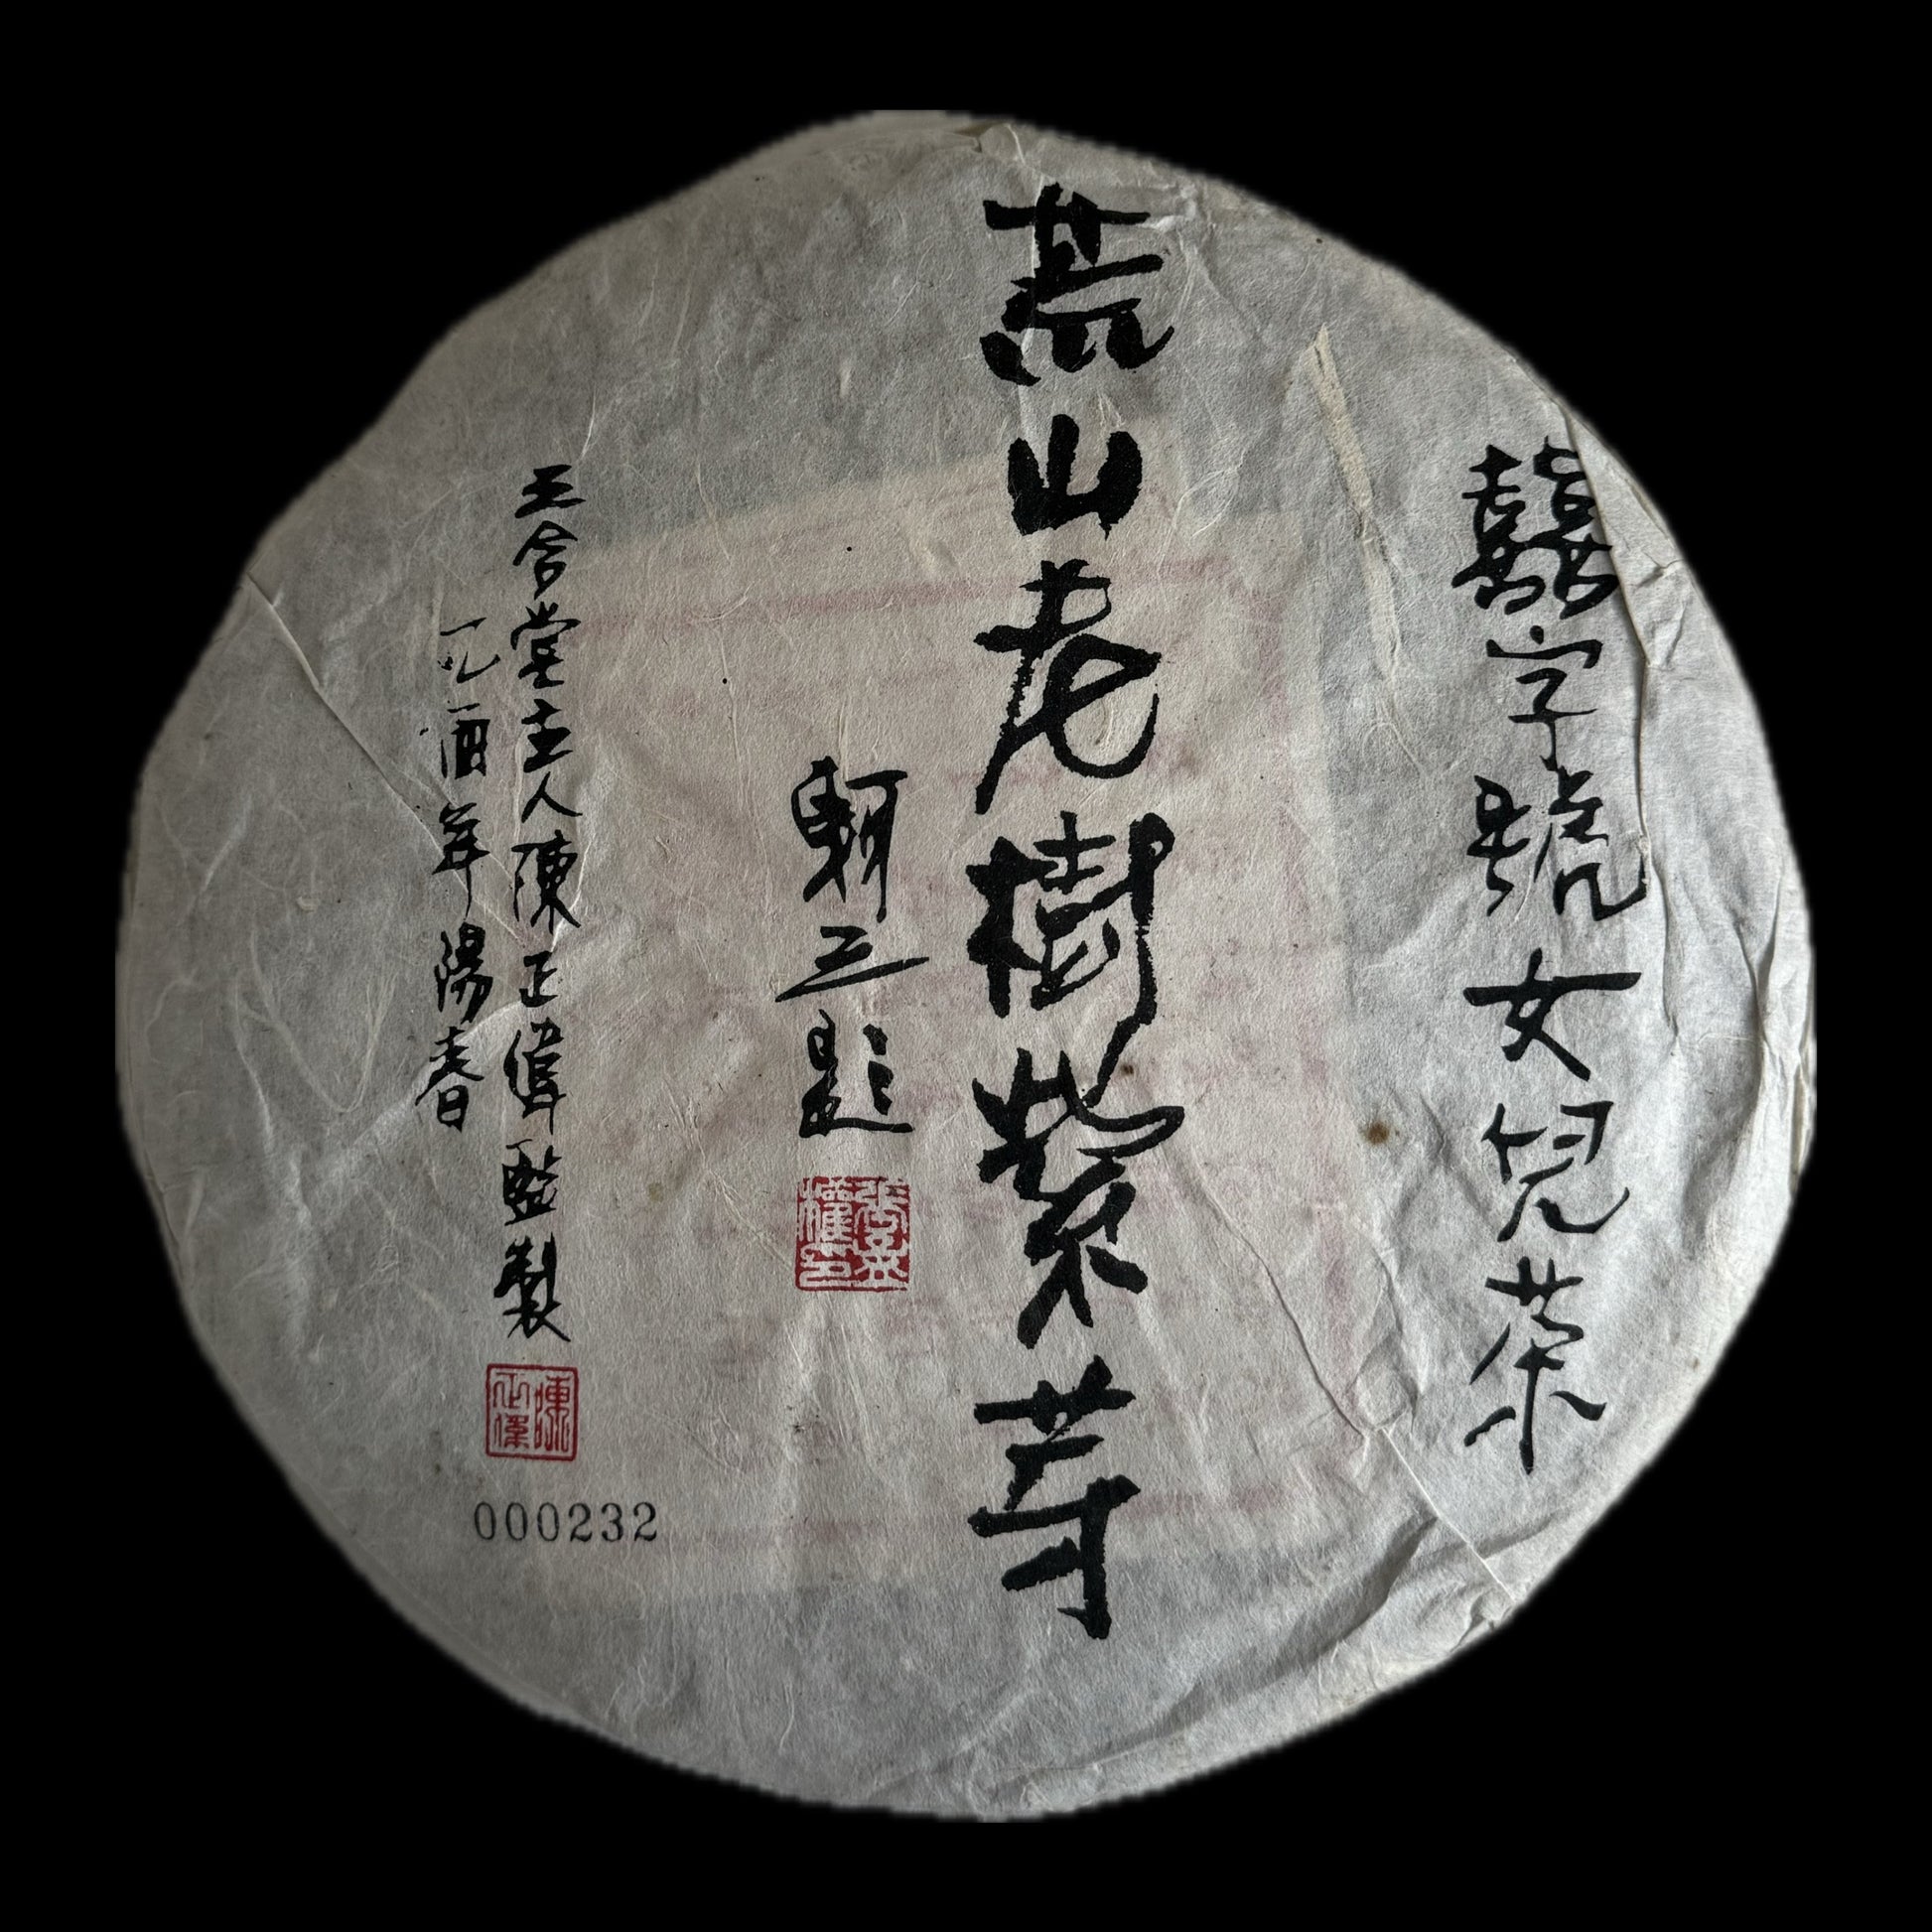 囍字號女兒茶
荒山老樹紫芽
三題
合堂主人陳正偉監製
酉年陽春
陳正偉
000232